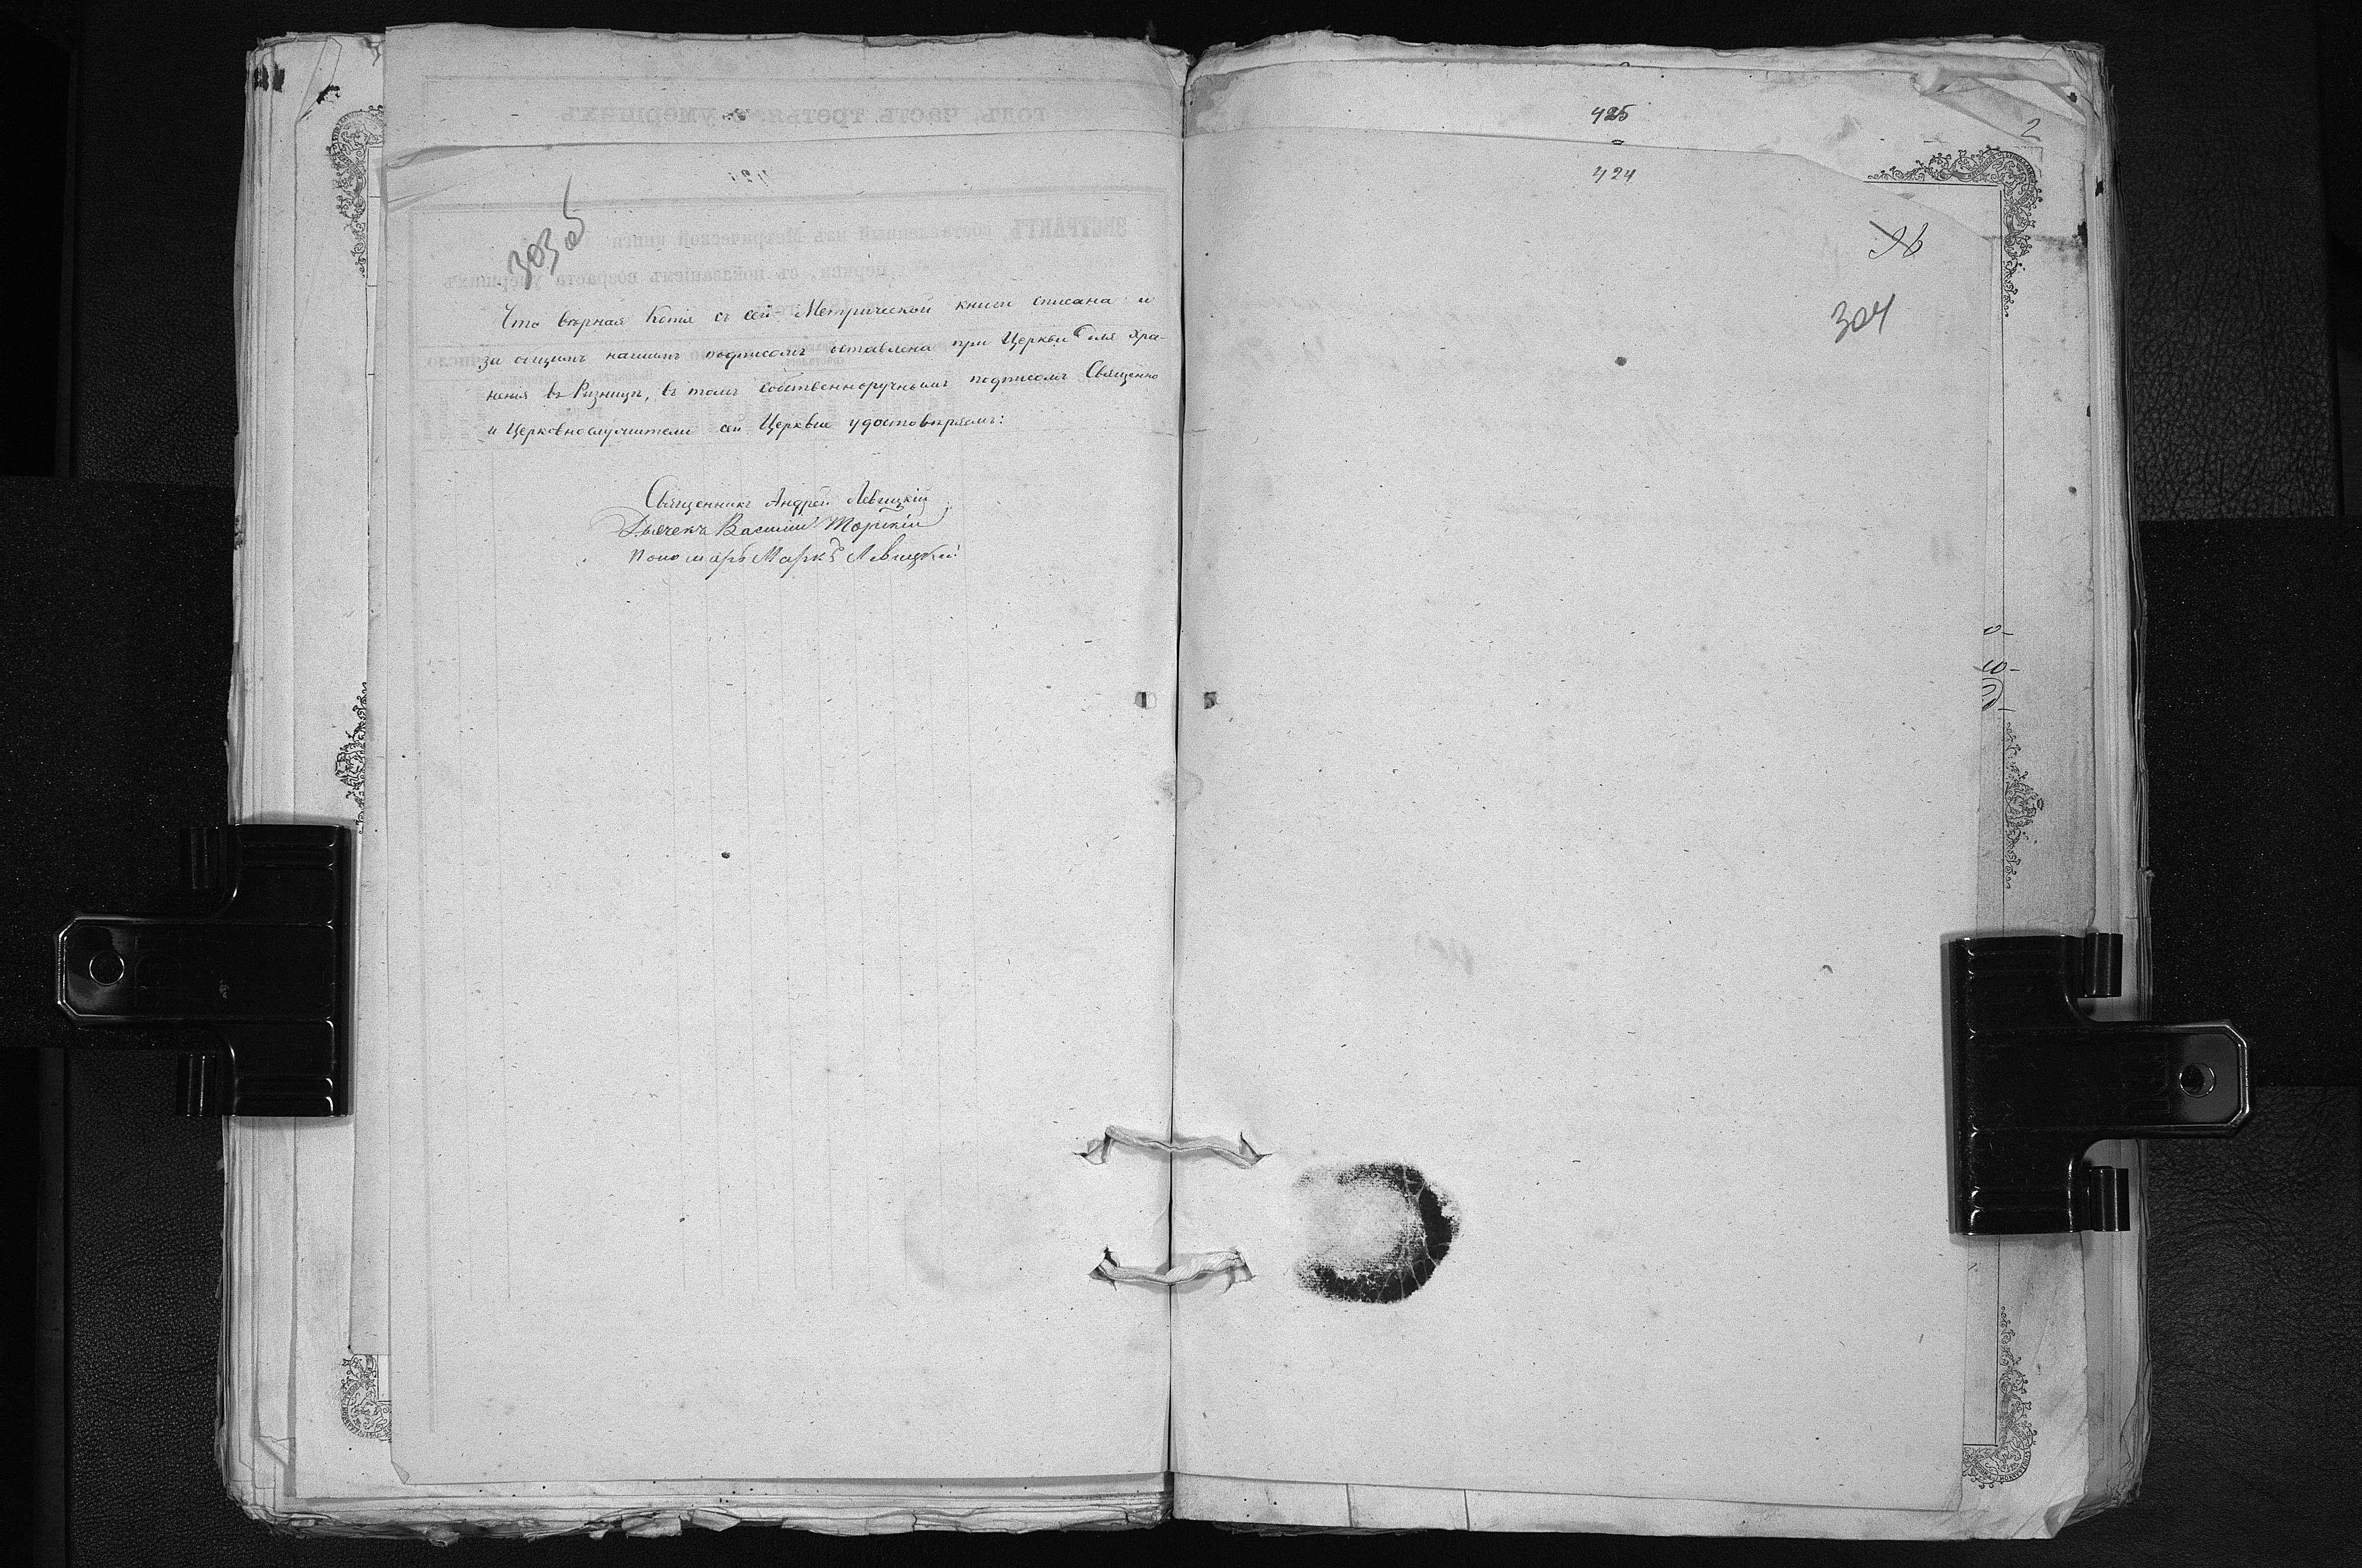 303 об
Что вѣрная Копія съ сей Метрической книги списана и
за общимъ нашимъ подписомъ оставлена при Церкви для хра-
ненія въ Ризницѣ, въ томъ собственноручнымъ подписомъ Священно
и Церковнослужители сей Церкви удостовѣряемъ:
Священникъ Андрей Левицкій
Дьячекъ Василій Торскій
Пономарь Маркъ Левицкій
425
2
424
96
304